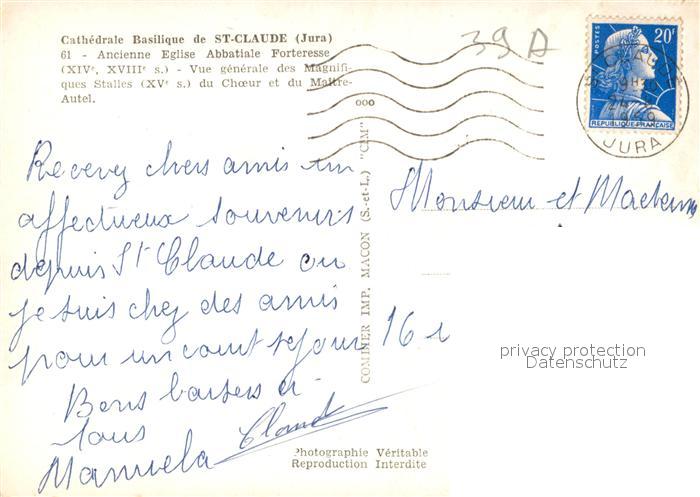 Cathédrale Basilique de ST-CLAUDE (Jura)
61 - Ancienne Eglise Abbatiale Forteresse
(XIVe, XVIIIe s.) - Vue générale des Magnifi-
ques Stalles (XVe s.) du Chœur et du Maître-
Autel.
39 A
POSTES
20F
REPUBLIQUE FRANÇAISE
JURA
ooo
Recevez chers amis un
affectueux souvenirs
depuis St Claude ou
je suis chez des amis
pour un court séjour
Bons baisers à
tous
Manuela Claude
COMBIER IMP. MACON (S.-et-L.) "CIM"
Monsieur et Madame
16
privacy protection
Datenschutz
Photographie Véritable
Reproduction Interdite